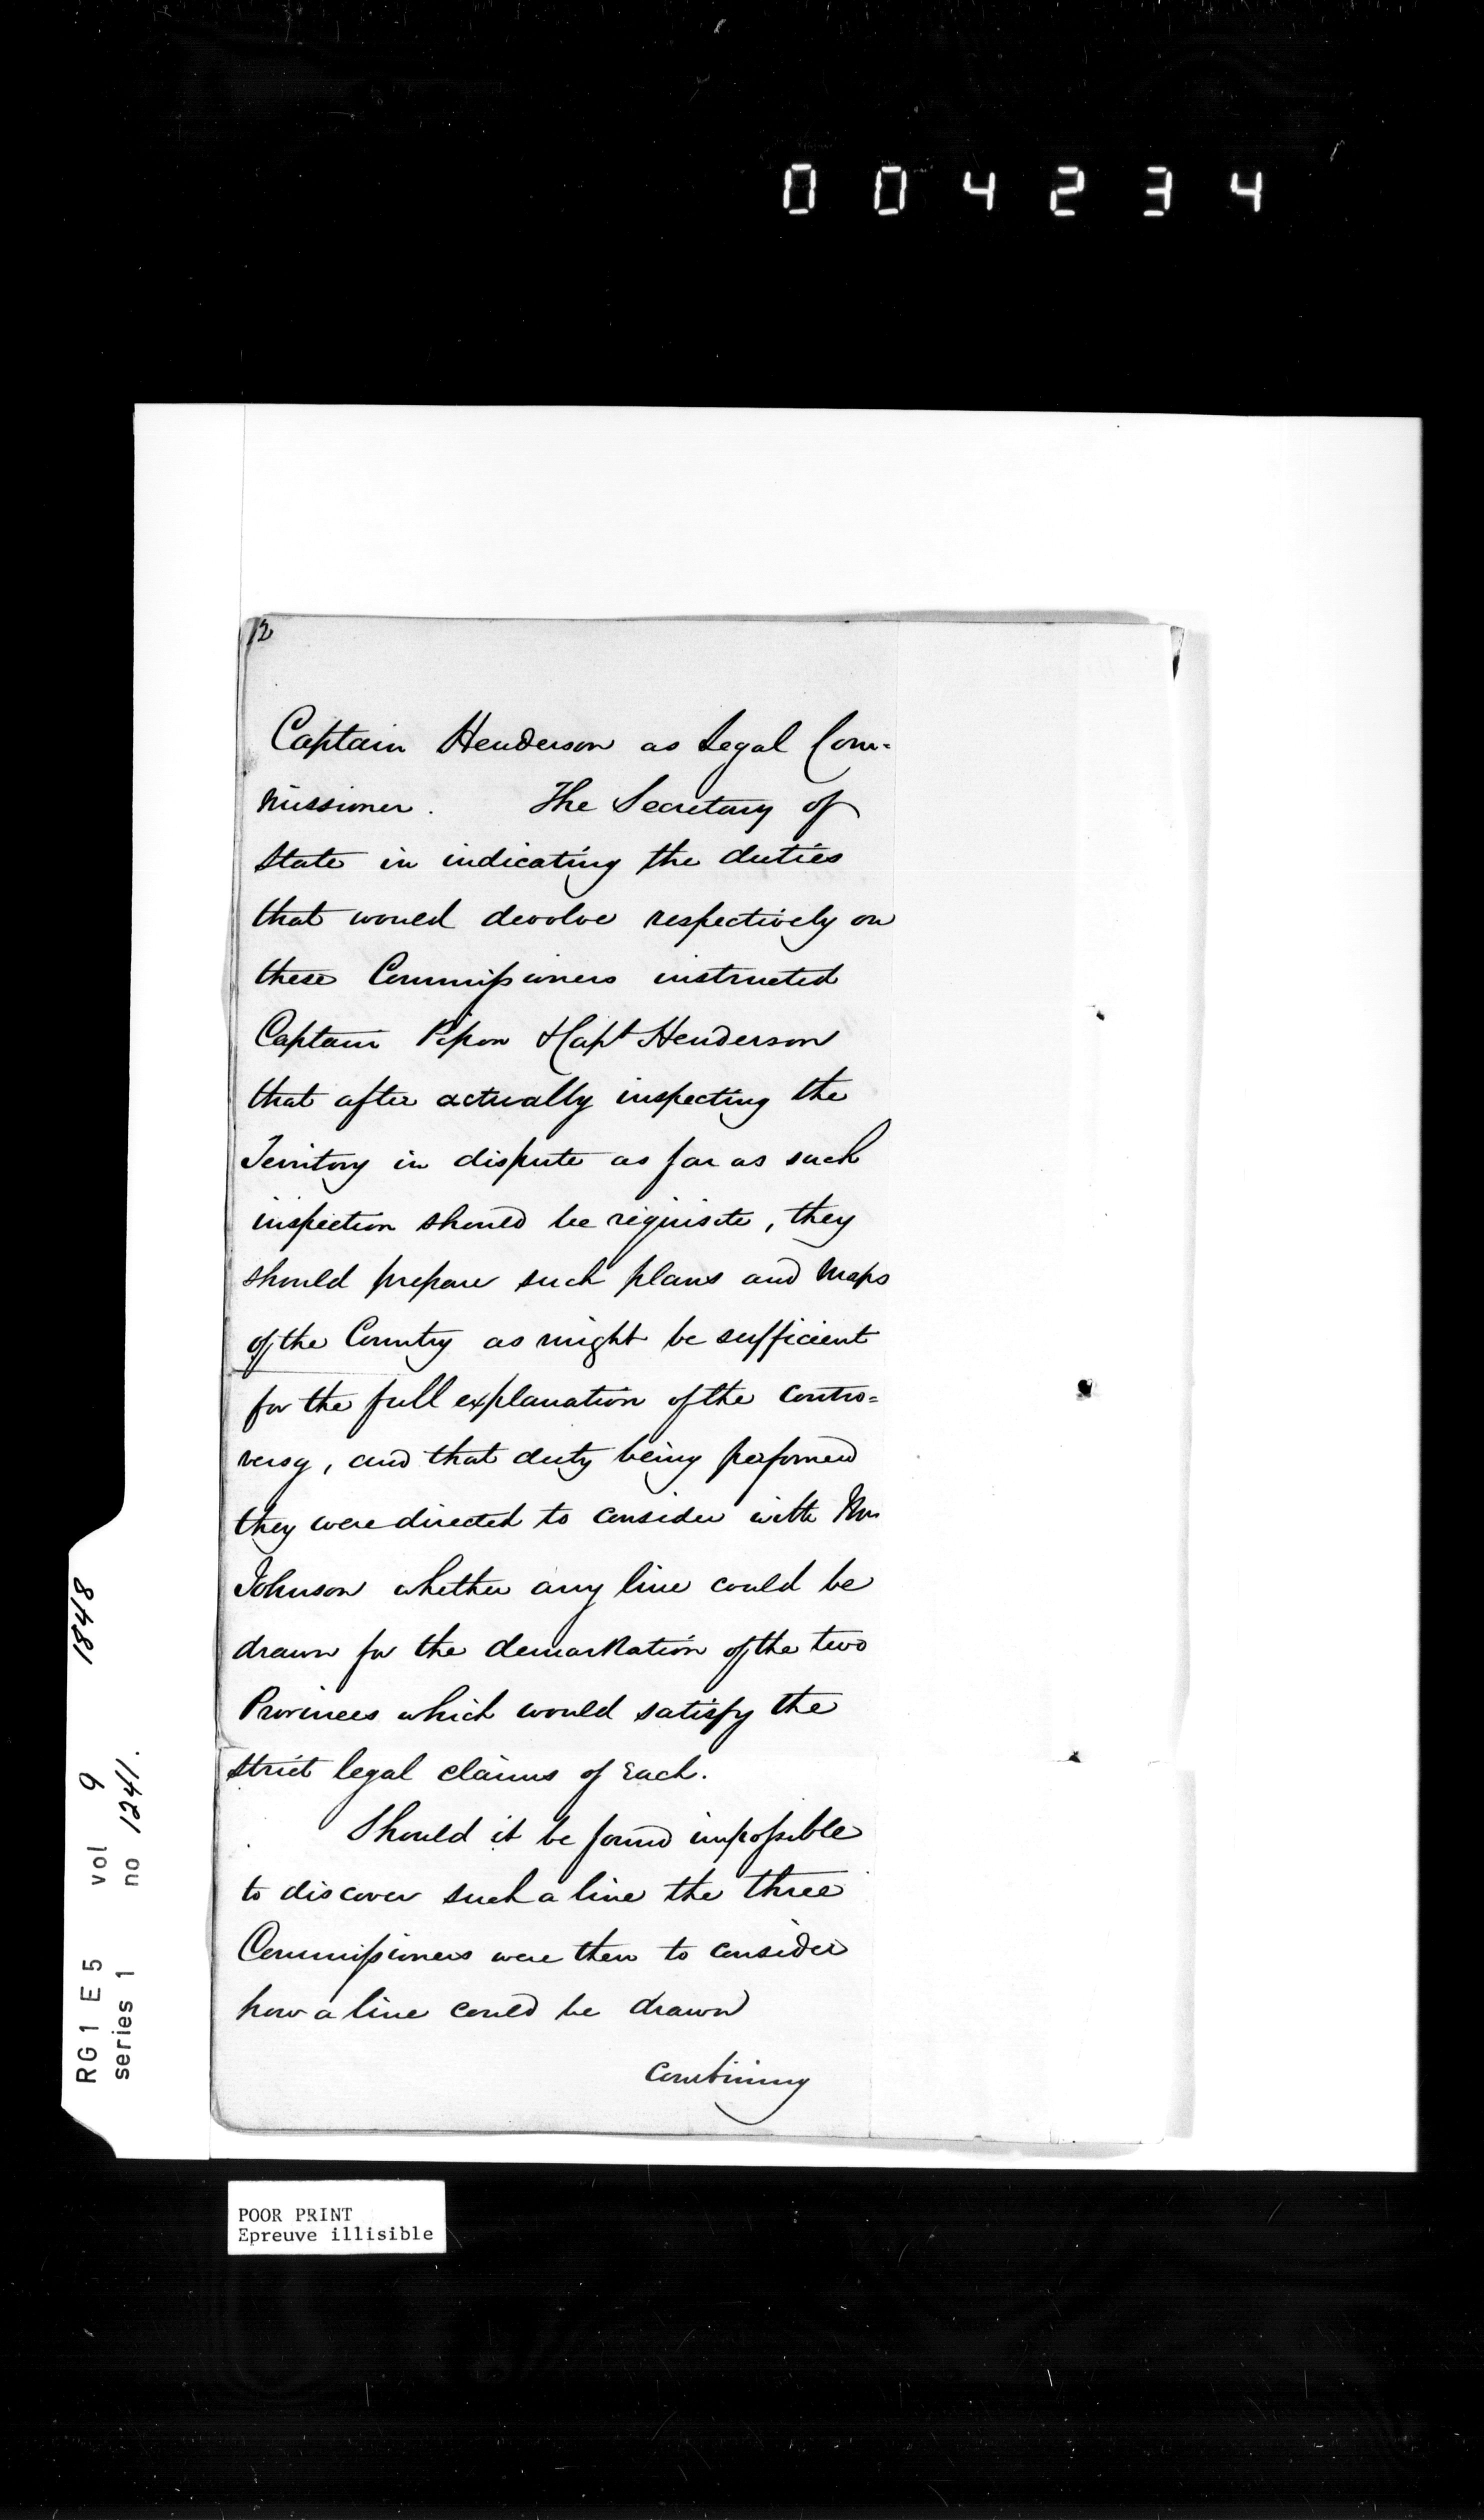 004234
12
Captain Henderson as Legal Com=
missioner. The Secretary of
State in indicating the duties
that would devolve respectively on
these Commissioners instructed
Captain Pipon & Capt Henderson
that after actually inspecting the
Territory in dispute as far as such
inspection should be requisite, they
should prepare such plans and Maps
of the Country as might be sufficient
for the full explanation of the Contro=
versy, and that duty being performed
they were directed to consider with Mr
Johnson whether any line could be
drawn for the demarkation of the two
Provinces which would satisfy the
strict legal claims of Each.
Should it be found impossible
to discover such a line the three
Commissioners were then to consider
how a line could be drawn
combining
RG1 E5 vol 9 1848
series 1 no 1241.
POOR PRINT
Epreuve illisible